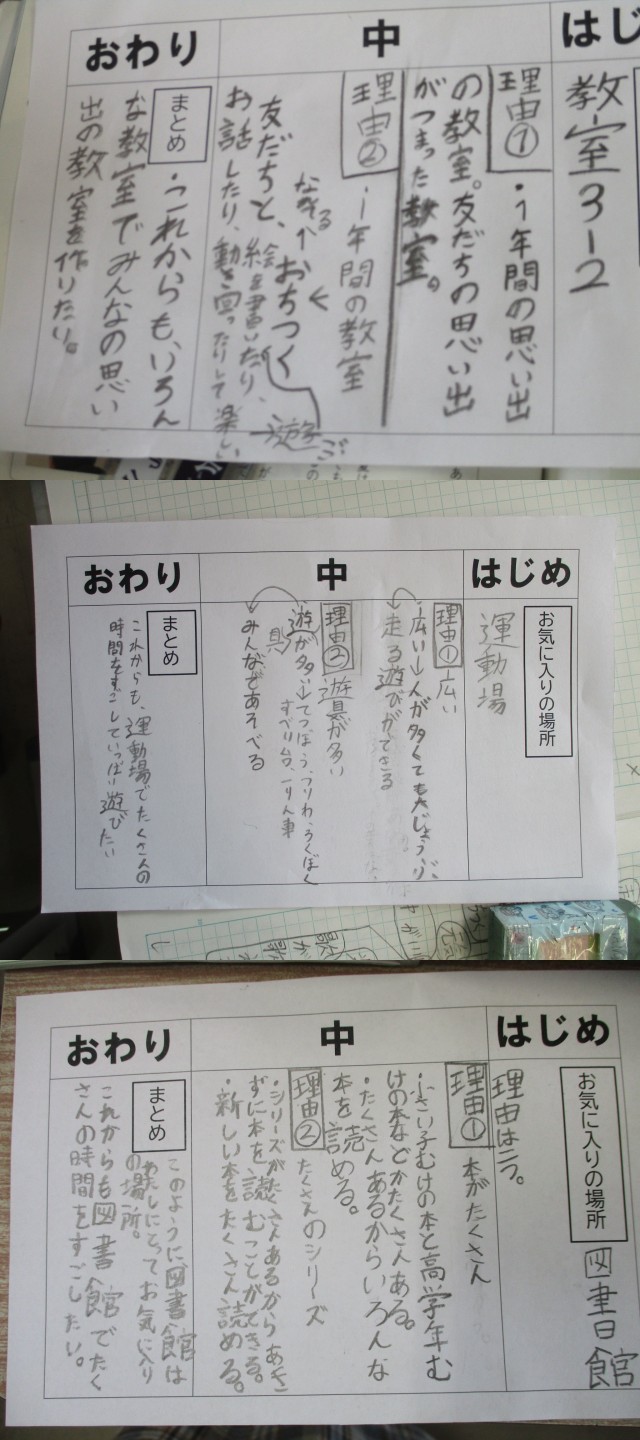 はじ
教室3-2
中
理由①
・1年間の思い出
の教室。友だちの思い出
がつまった教室。
理由②
・1年間の教室
なぜ
おちつく
遊
友だちと、絵を書いたり、
お話したり、動き回ったりして楽しい
おわり
まとめ
・これからも、いろん
な教室でみんなの思い
出の教室を作りたい。
はじめ
お気に入りの場所
運動場
中
理由① 広い
広い→人が多くても大じょうぶ
走る遊びができる
理由② 遊具が多い
遊具が多い→てつぼう、つりわ、ろくぼく
すべり台、一りん車
みんなであそべる
おわり
まとめ
これからも、運動場でたくさんの
時間をすごしていっぱい遊びたい
はじめ
お気に入りの場所
図書館
理由は二つ。
中
理由① 本がたくさん
・小さい子むけの本と高学年む
けの本などがたくさんある。
・たくさんあるからいろんな
本を読める。
理由② たくさんのシリーズ
・シリーズがたくさんあるからあき
ずに本を読むことができる。
・新しい本をたくさん読める。
おわり
まとめ
このように図書館は
わたしにとってお気に入り
の場所。
これからも図書館でたく
さんの時間をすごしたい。